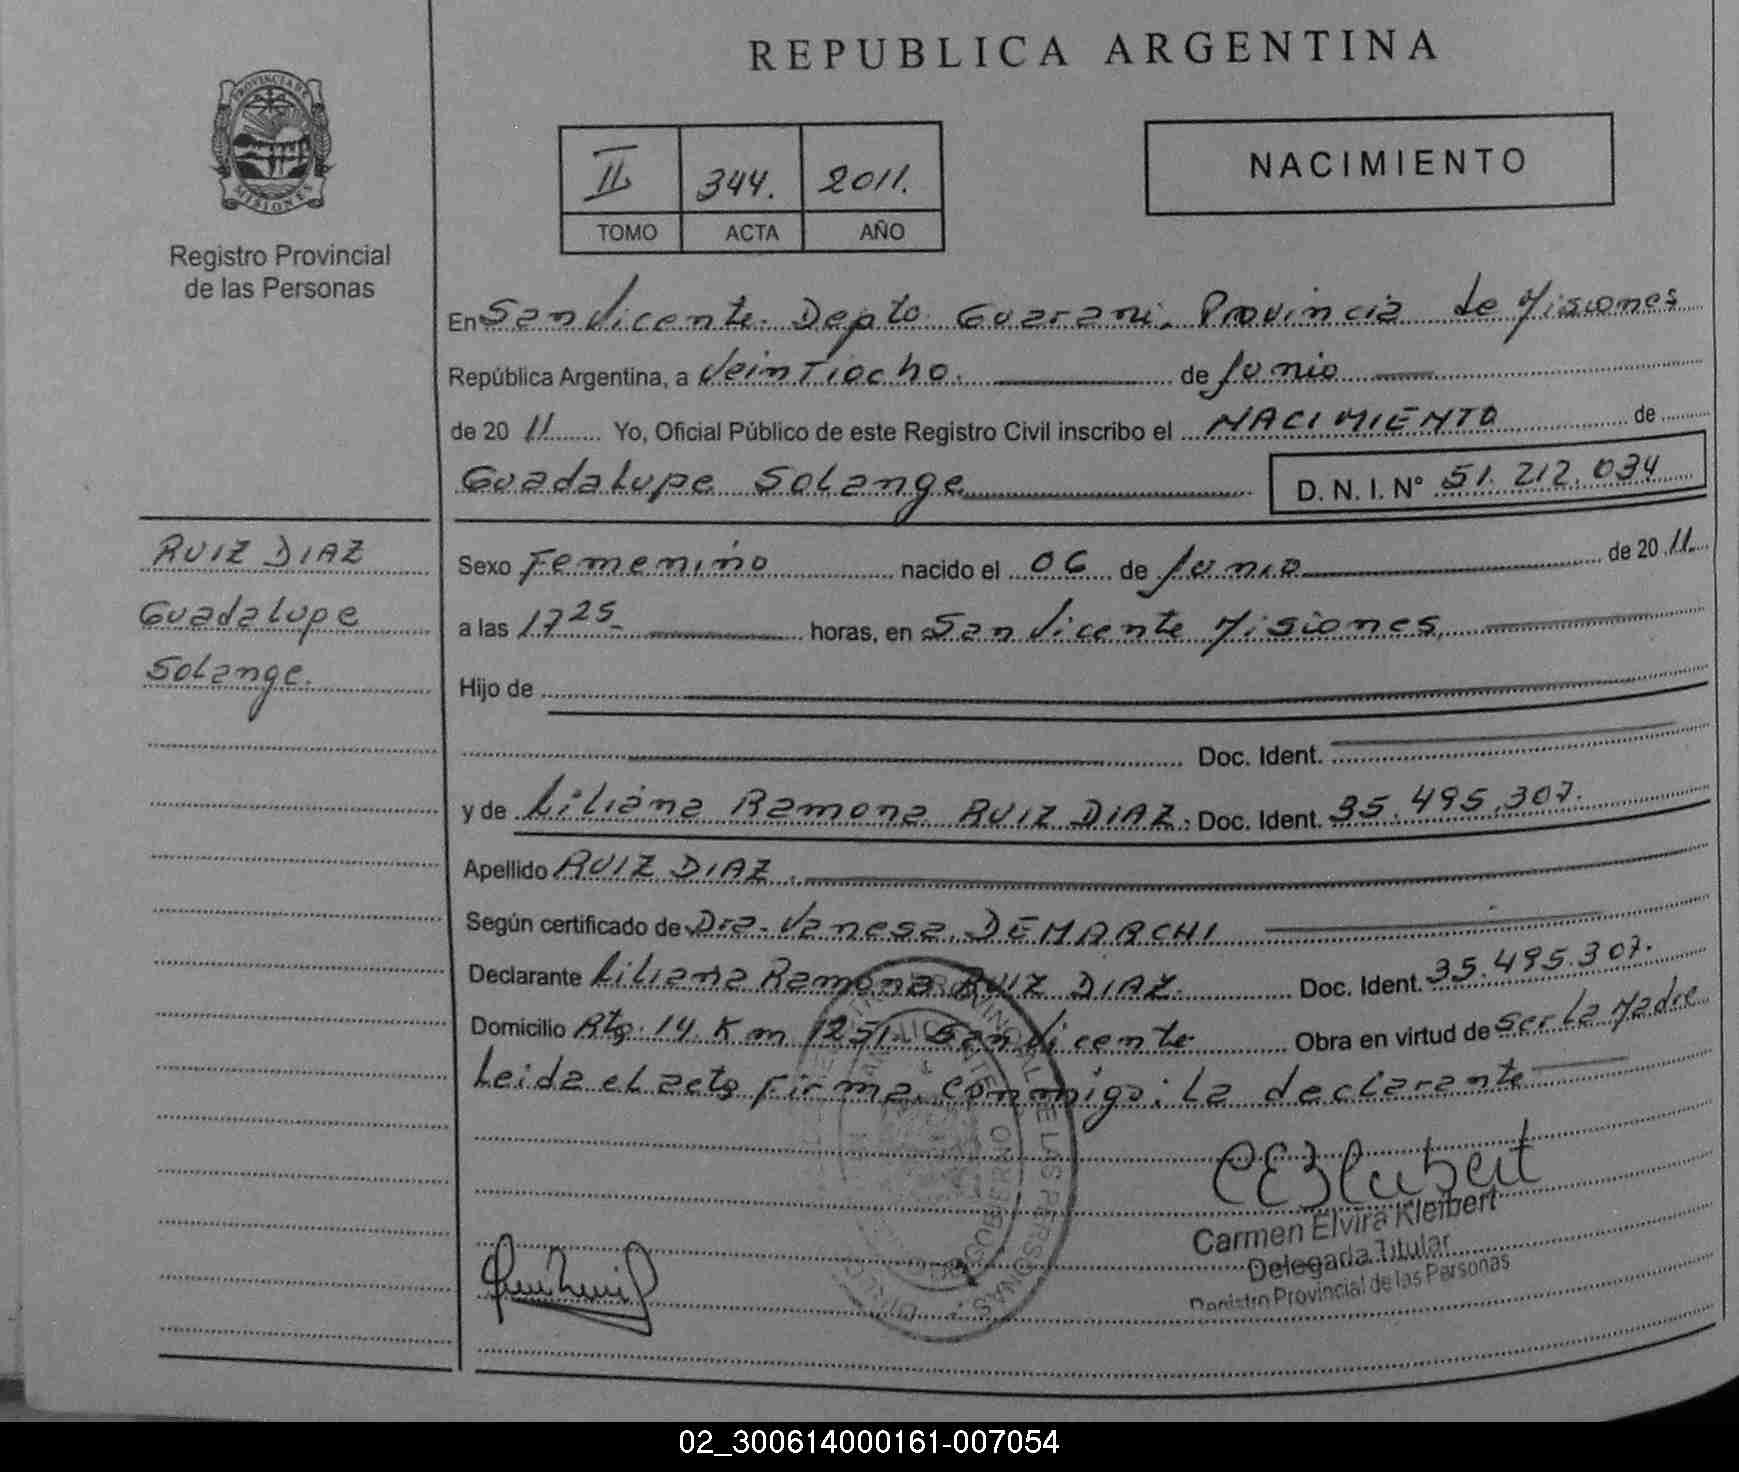 PROVINCIA DE
MISIONES
Registro Provincial
de las Personas
REPUBLICA ARGENTINA
II 344. 2011.
TOMO ACTA AÑO
NACIMIENTO
En San Vicente. Depto Guarani. Provincia de Misiones
República Argentina, a Veintiocho. de Junio
de 20 11 Yo, Oficial Público de este Registro Civil inscribo el NACIMIENTO de
Guadalupe Solange D. N. I. N° 51.212.034
RUIZ DIAZ
Guadalupe
Solange.
Sexo Femenino nacido el 06 de Junio de 20 11.
a las 17 25 horas, en San Vicente Misiones,
Hijo de
Doc. Ident.
y de Liliana Ramona RUIZ DIAZ. Doc. Ident. 35.495.307.
Apellido RUIZ DIAZ.
Según certificado de Dra. Vanesa DEMARCHI
Declarante Liliana Ramona RUIZ DIAZ. Doc. Ident. 35.495.307.
Domicilio Rta. 14. Km 1251. San Vicente Obra en virtud de ser La Madre
Leida el acta Firma conmigo: La declarante
DE LAS PERSONAS
GOBIERNO
Carmen Elvira Kleibert
Delegada Titular
Registro Provincial de las Personas
02_300614000161-007054